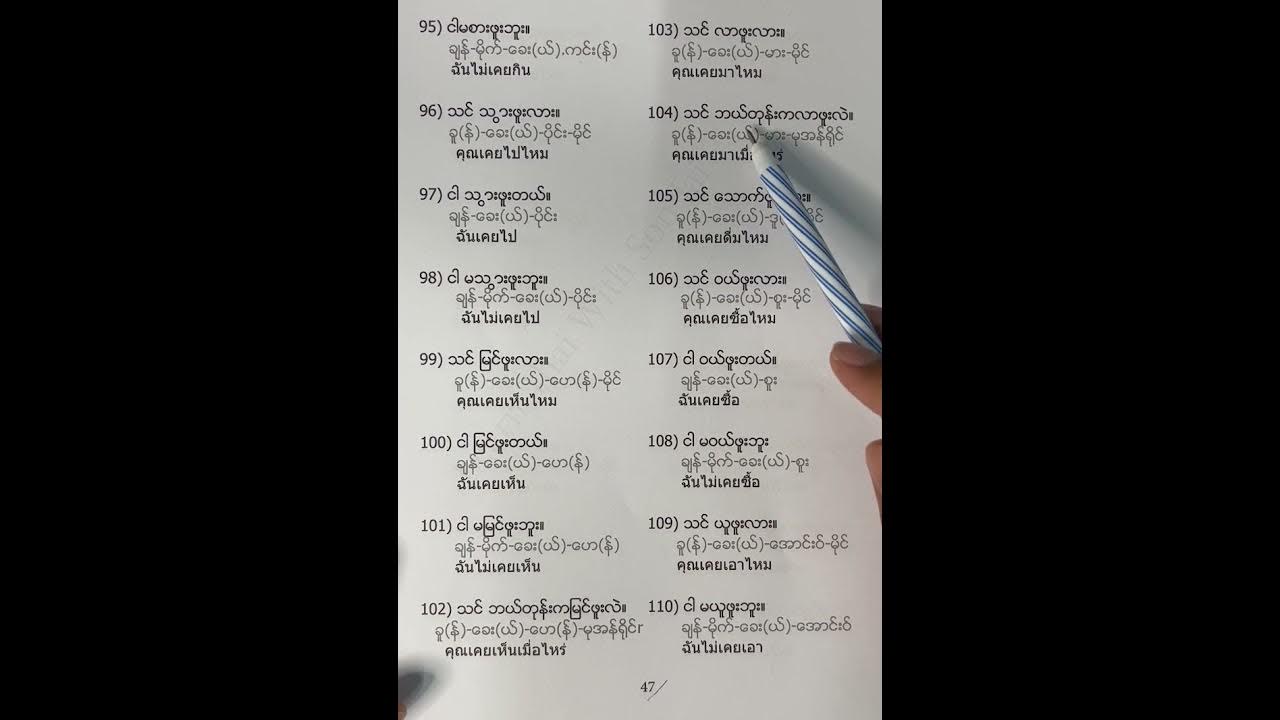 95) ငါမစားဖူးဘူး။
ချန်-မိုက်-ခေး(ယ်).ကင်း(န်)
ฉันไม่เคยกิน
96) သင် သွားဖူးလား။
ခူ(န်)-ခေး(ယ်)-ပိုင်း-မိုင်
คุณเคยไปไหม
97) ငါ သွားဖူးတယ်။
ချန်-ခေး(ယ်)-ပိုင်း
ฉันเคยไป
98) ငါ မသွားဖူးဘူး။
ချန်-မိုက်-ခေး(ယ်)-ပိုင်း
ฉันไม่เคยไป
99) သင် မြင်ဖူးလား။
ခူ(န်)-ခေး(ယ်)-ဟေ(န်)-မိုင်
คุณเคยเห็นไหม
100) ငါ မြင်ဖူးတယ်။
ချန်-ခေး(ယ်)-ဟေ(န်)
ฉันเคยเห็น
101) ငါ မမြင်ဖူးဘူး။
ချန်-မိုက်-ခေး(ယ်)-ဟေ(န်)
ฉันไม่เคยเห็น
102) သင် ဘယ်တုန်းကမြင်ဖူးလဲ။
ခူ(န်)-ခေး(ယ်)-ဟေ(န်)-မုအန်ရိုင်r
คุณเคยเห็นเมื่อไหร่
103) သင် လာဖူးလား။
ခူ(န်)-ခေး(ယ်)-မား-မိုင်
คุณเคยมาไหม
104) သင် ဘယ်တုန်းကလာဖူးလဲ။
ခူ(န်)-ခေး(ယ်)-မား-မုအန်ရိုင်
คุณเคยมาเมื่อ
105) သင် သောက်
ခူ(န်)-ခေး(ယ်)
คุณเคยดื่มไหม
106) သင် ဝယ်ဖူးလား။
ခူ(န်)-ခေး(ယ်)-စူး-မိုင်
คุณเคยซื้อไหม
107) ငါ ဝယ်ဖူးတယ်။
ချန်-ခေး(ယ်)-စူး
ฉันเคยซื้อ
108) ငါ မဝယ်ဖူးဘူး
ချန်-မိုက်-ခေး(ယ်)-စူး
ฉันไม่เคยซื้อ
109) သင် ယူဖူးလား။
ခူ(န်)-ခေး(ယ်)-အောင်းဝ်-မိုင်
คุณเคยเอาไหม
110) ငါ မယူဖူးဘူး။
ချန်-မိုက်-ခေး(ယ်)-အောင်းဝ်
ฉันไม่เคยเอา
47